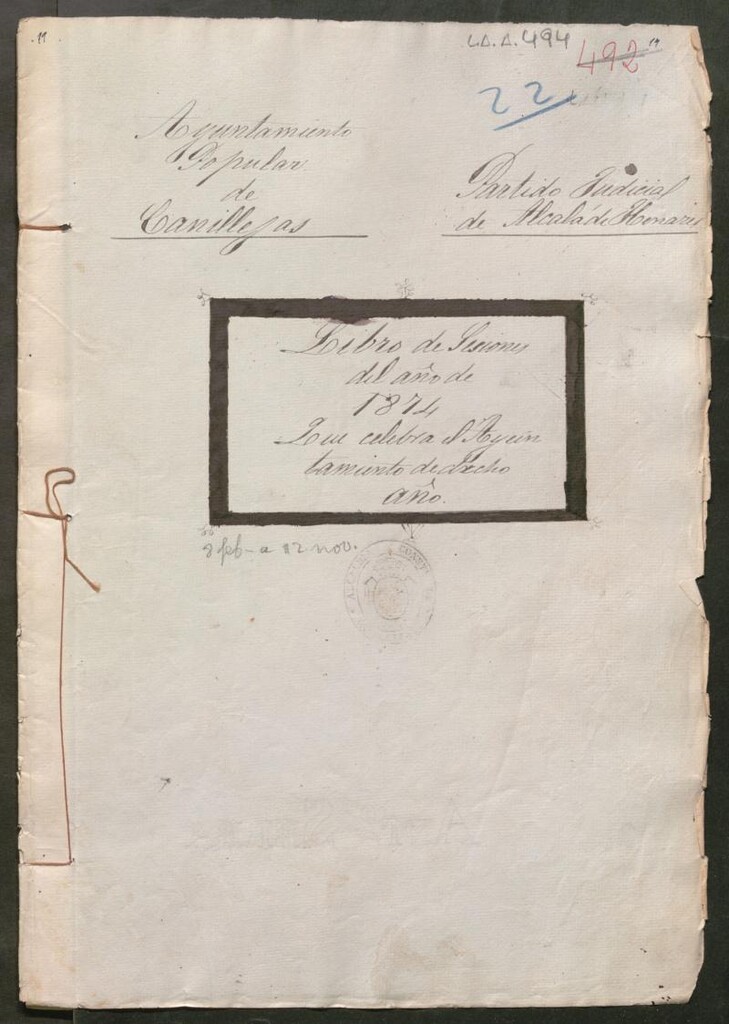 L.A.A. 494
492
22
Ayuntamiento
Popular
de
Canillejas
Partido Judicial
de Alcalá de Henares
Libro de Sesiones
del año de
1874
Que celebra el Ayun
tamiento de Dicho
año.
8 feb- a 12 nov.